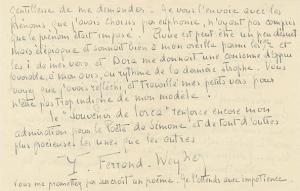 gentillesse de me demander. Je vous l'envoie avec les
prénoms que j'avais choisis par euphonie, n'ayant pas compris
que le prénom était imposé. Pure est peut être un peu désuet
mais élégiaque et sonnait bien à mon oreille parmi les
et i de mes vers et Dora me donnait une consonne d'appui
favorable, à mon avis, au rythme de la dernière strophe. Vous
voyez que j'avais réfléchi, et travaillé mes petits vers pour
n'être pas trop indigne de mon modèle !
Le "Souvenir de Lorca" renforce encore mon
admiration pour le Poète de Simone et de tant d'autres
plus précieuses les unes que les autres
Y. Ferrand-Weyher
Vous me promettez par surcroît un poème. Je l'attends avec impatience.